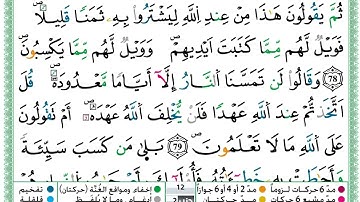 ثُمَّ يَقُولُونَ هَٰذَا مِنْ عِندِ اللَّهِ لِيَشْتَرُوا بِهِ ثَمَنًا قَلِيلًا ۖ
فَوَيْلٌ لَّهُم مِّمَّا كَتَبَتْ أَيْدِيهِمْ وَوَيْلٌ لَّهُم مِّمَّا يَكْسِبُونَ
٧٨ وَقَالُوا لَن تَمَسَّنَا النَّارُ إِلَّا أَيَّامًا مَّعْدُودَةً ۚ قُلْ
أَتَّخَذْتُمْ عِندَ اللَّهِ عَهْدًا فَلَن يُخْلِفَ اللَّهُ عَهْدَهُ ۖ أَمْ تَقُولُونَ
عَلَى اللَّهِ مَا لَا تَعْلَمُونَ ٧٩ بَلَىٰ مَن كَسَبَ سَيِّئَةً
مدّ 6 حركات لزوماً مدّ 2 أو 4 أو 6 جوازاً 12 إخفاء ومواقع الغُنَّة (حركتان) تفخيم
مدّ حركتان إدغام وما لا يُلفظ قلقلة